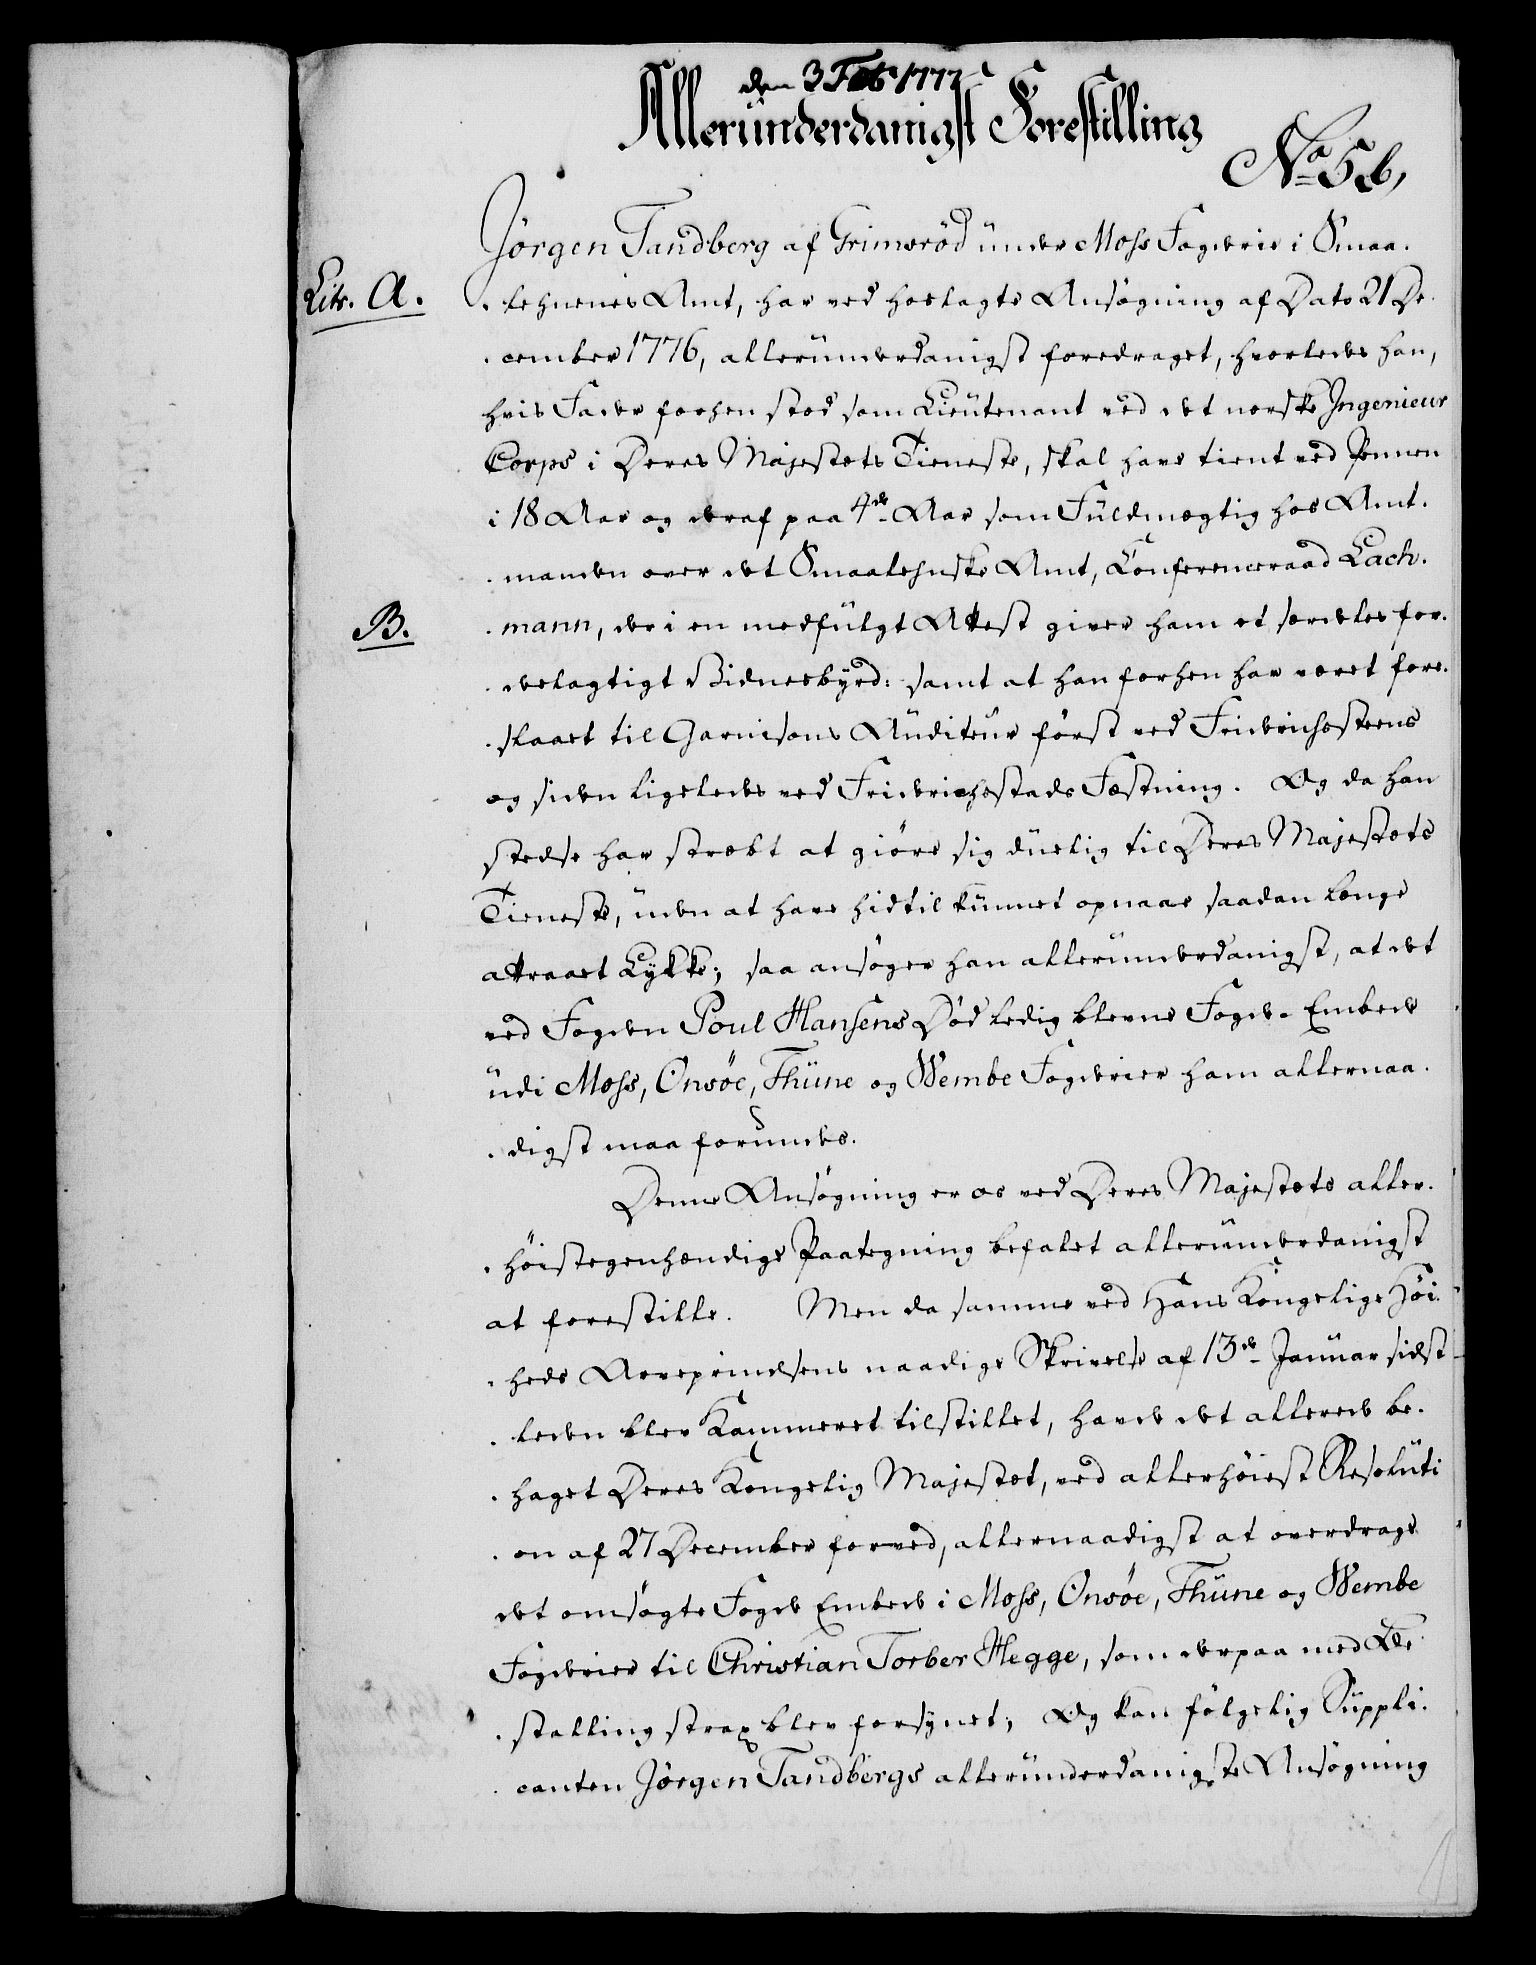 den 3 Feb 1777
Alleründerdanigst Forestilling
No 56,
Jörgen Tandberg af Grimsröd ünder Moss Fogderie i Smaa-
Litr. A.
lehnenes Amt, har ved hoslagte Ansögning af Dato 21 De-
cember 1776, alleründerdanigst foredraget, hvorledes han,
hvis Fader forhen stod som Lieutenant ved det norske Ingenieur
Corps i Deres Majestæts Tieneste, skal have tient ved Pennen
i 18 Aar og deraf paa 4de Aar som Füldmægtig hos Amt-
manden over det Smaalehnske Amt, Conferenceraad Lach-
B.
mann, der i en medfülgt Attest giver ham et særdeles for-
delagtigt Vidnesbyrd: samt at han forhen har været fore-
slaaet til Garnisons Auditeur först ved Friderichssteens
og siden ligeledes ved Friderichstads Fæstning. Og da han
stedse har stræbt at giöre sig düelig til Deres Majestæts
Tieneste, üden at have hidtil künnet opnaae saadan længe
attraaet Lykke; saa ansöger han alleründerdanigst, at det
ved Fogden Poul Hansens Död ledig blevne Fogde-Embede
üdi Moss, Onsöe, Thüne og Wembe Fogderier ham allernaa-
digst maa forundes.
Denne Ansögning er os ved Deres Majestæts aller-
höistegenhændige Paategning befalet alleründerdanigst
at forestille. Men da samme ved Hans Kongelige Höi-
heds Arveprindsens naadige Skrivelse af 13de Januar sidst-
leden blev Kammeret tilstillet, havde det allerede be-
haget Deres Kongelig Majestæt, ved allerhöiest Resolüti-
on af 27 December forved, allernaadigst at overdrage
det omsögte Fogde Embede i Moss, Onsöe, Thüne og Wembe
Fogderier til Christian Torber Hegge, som derpaa med Be-
stalling strax blev forsynet; Og kan fölgelig Süppli-
canten Jörgen Tandbergs alleründerdanigste Ansögning